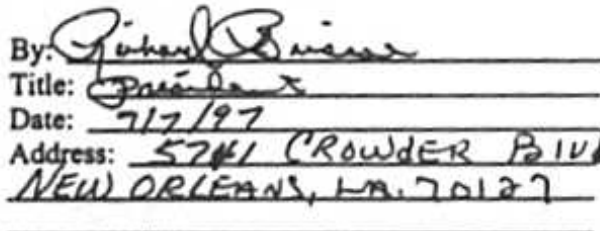 By: Richard Briscoe
Title: President
Date: 7/7/97
Address: 5741 CROWDER Blv
NEW ORLEANS, LA. 70127